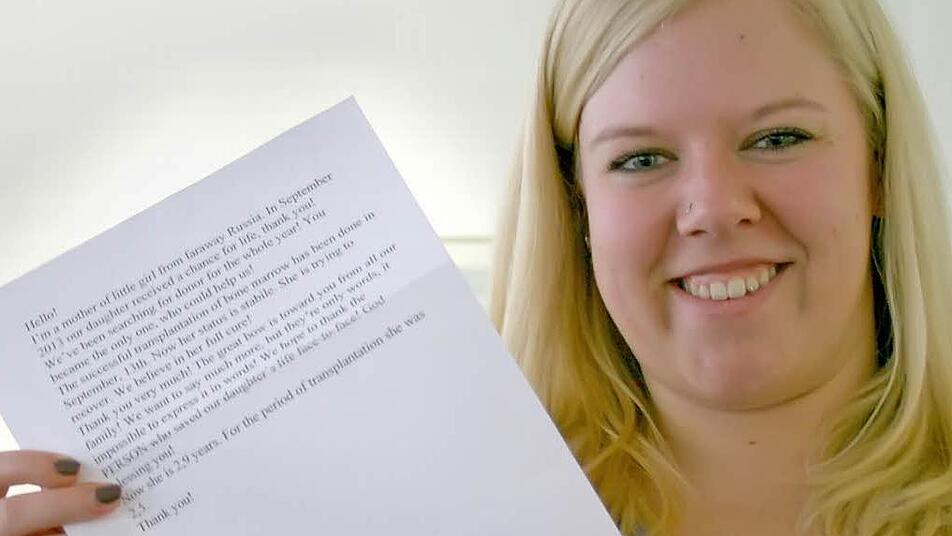 Hello!
I'm a mother of little girl from faraway Russia. In September
2013 our daughter received a chance for life, thank you!
We've been searching for donor for the whole year! You
became the only one, who could help us!
The successful transplantation of bone marrow has been done in
September, 13th. Now her status is stabile. She is trying to
recover. We believe in her full cure!
Thank you very much! The great bow is toward you from all our
family! We want to say much more, but they're only words, it
impossible to express it in words. We hope to thank the
PERSON who saved our daughter a life face-to-face! God
lessing you!
Now she is 2,9 years. For the period of transplantation she was
2,5
Thank you!